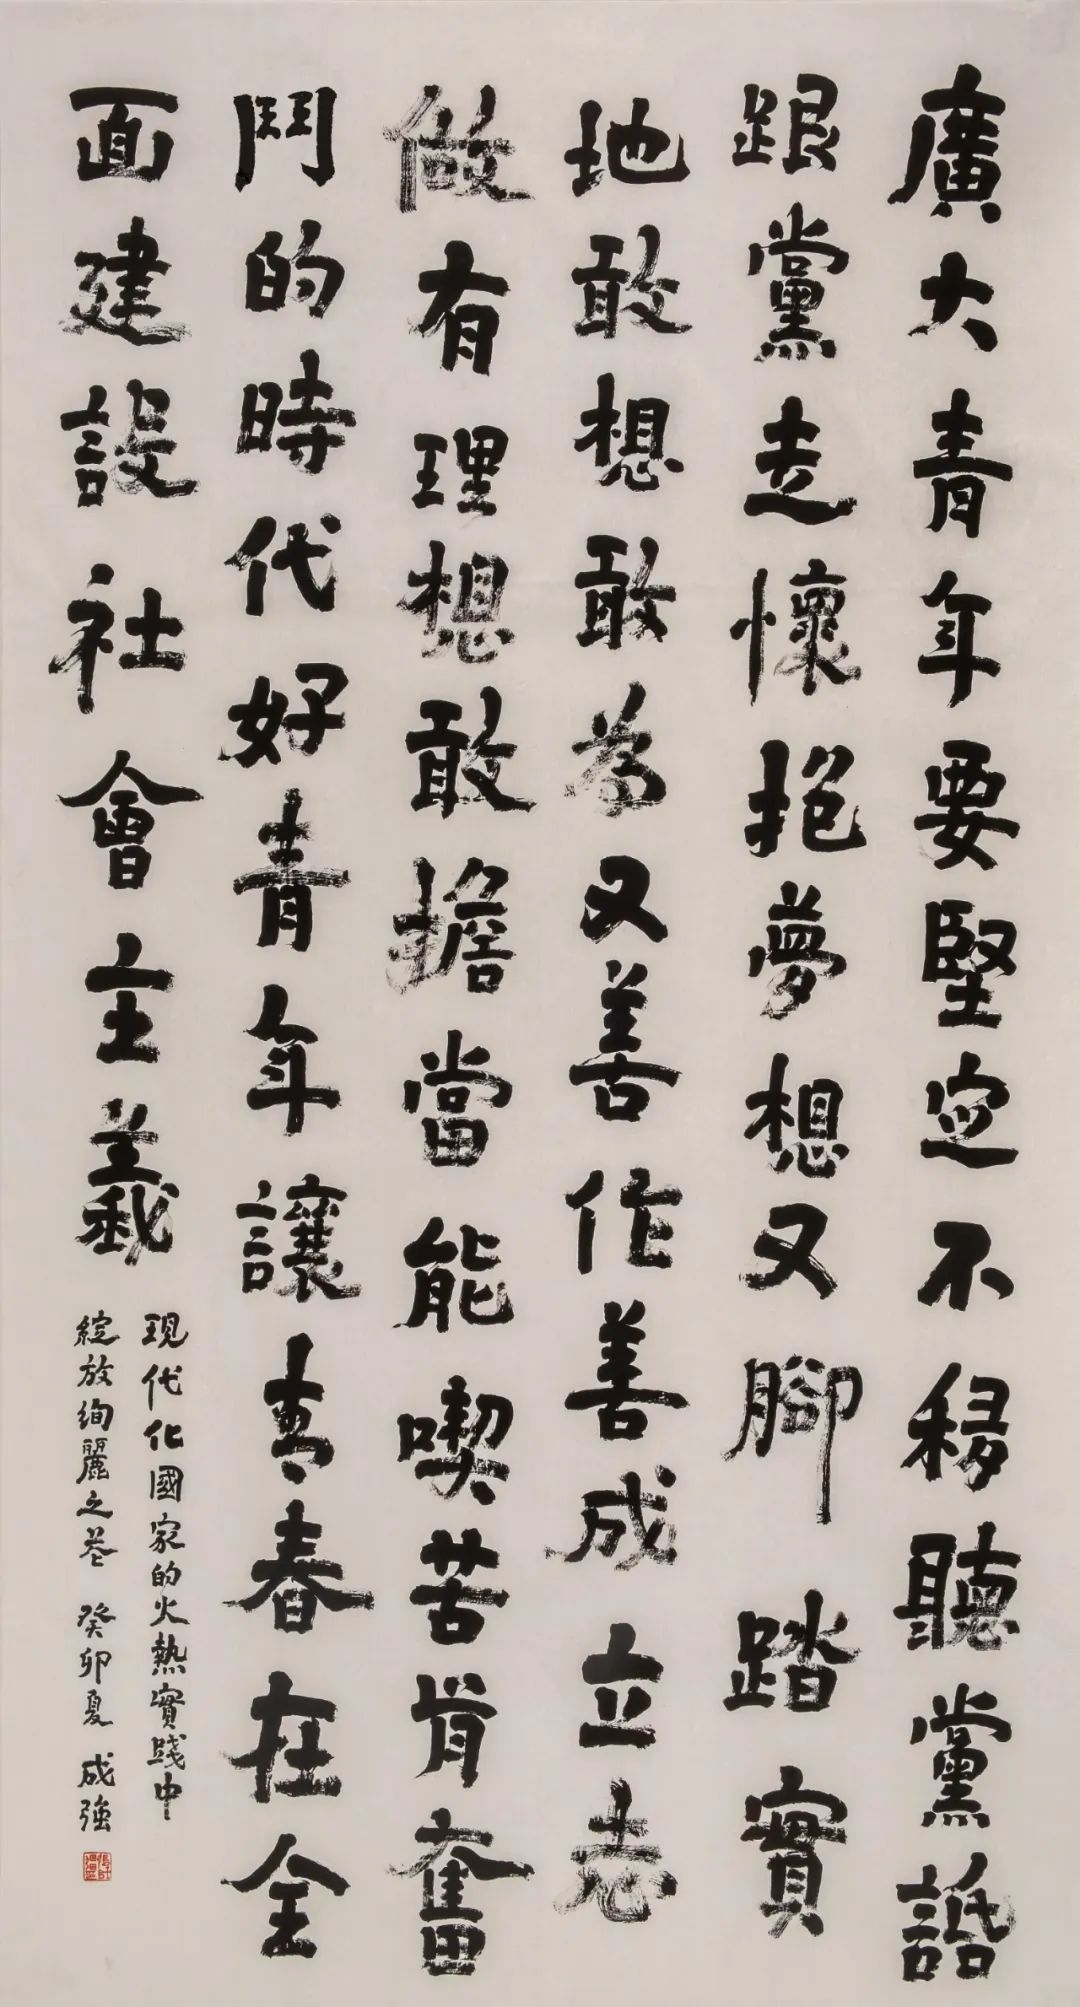 廣大青年要堅定不移聽黨話
跟黨走懷抱夢想又腳踏實
地敢想敢為又善作善成立志
做有理想敢擔當能喫苦肯奮
鬥的時代好青年讓青春在全
面建設社會主義
現代化國家的火熱實踐中
綻放絢麗之花 癸卯夏 成強